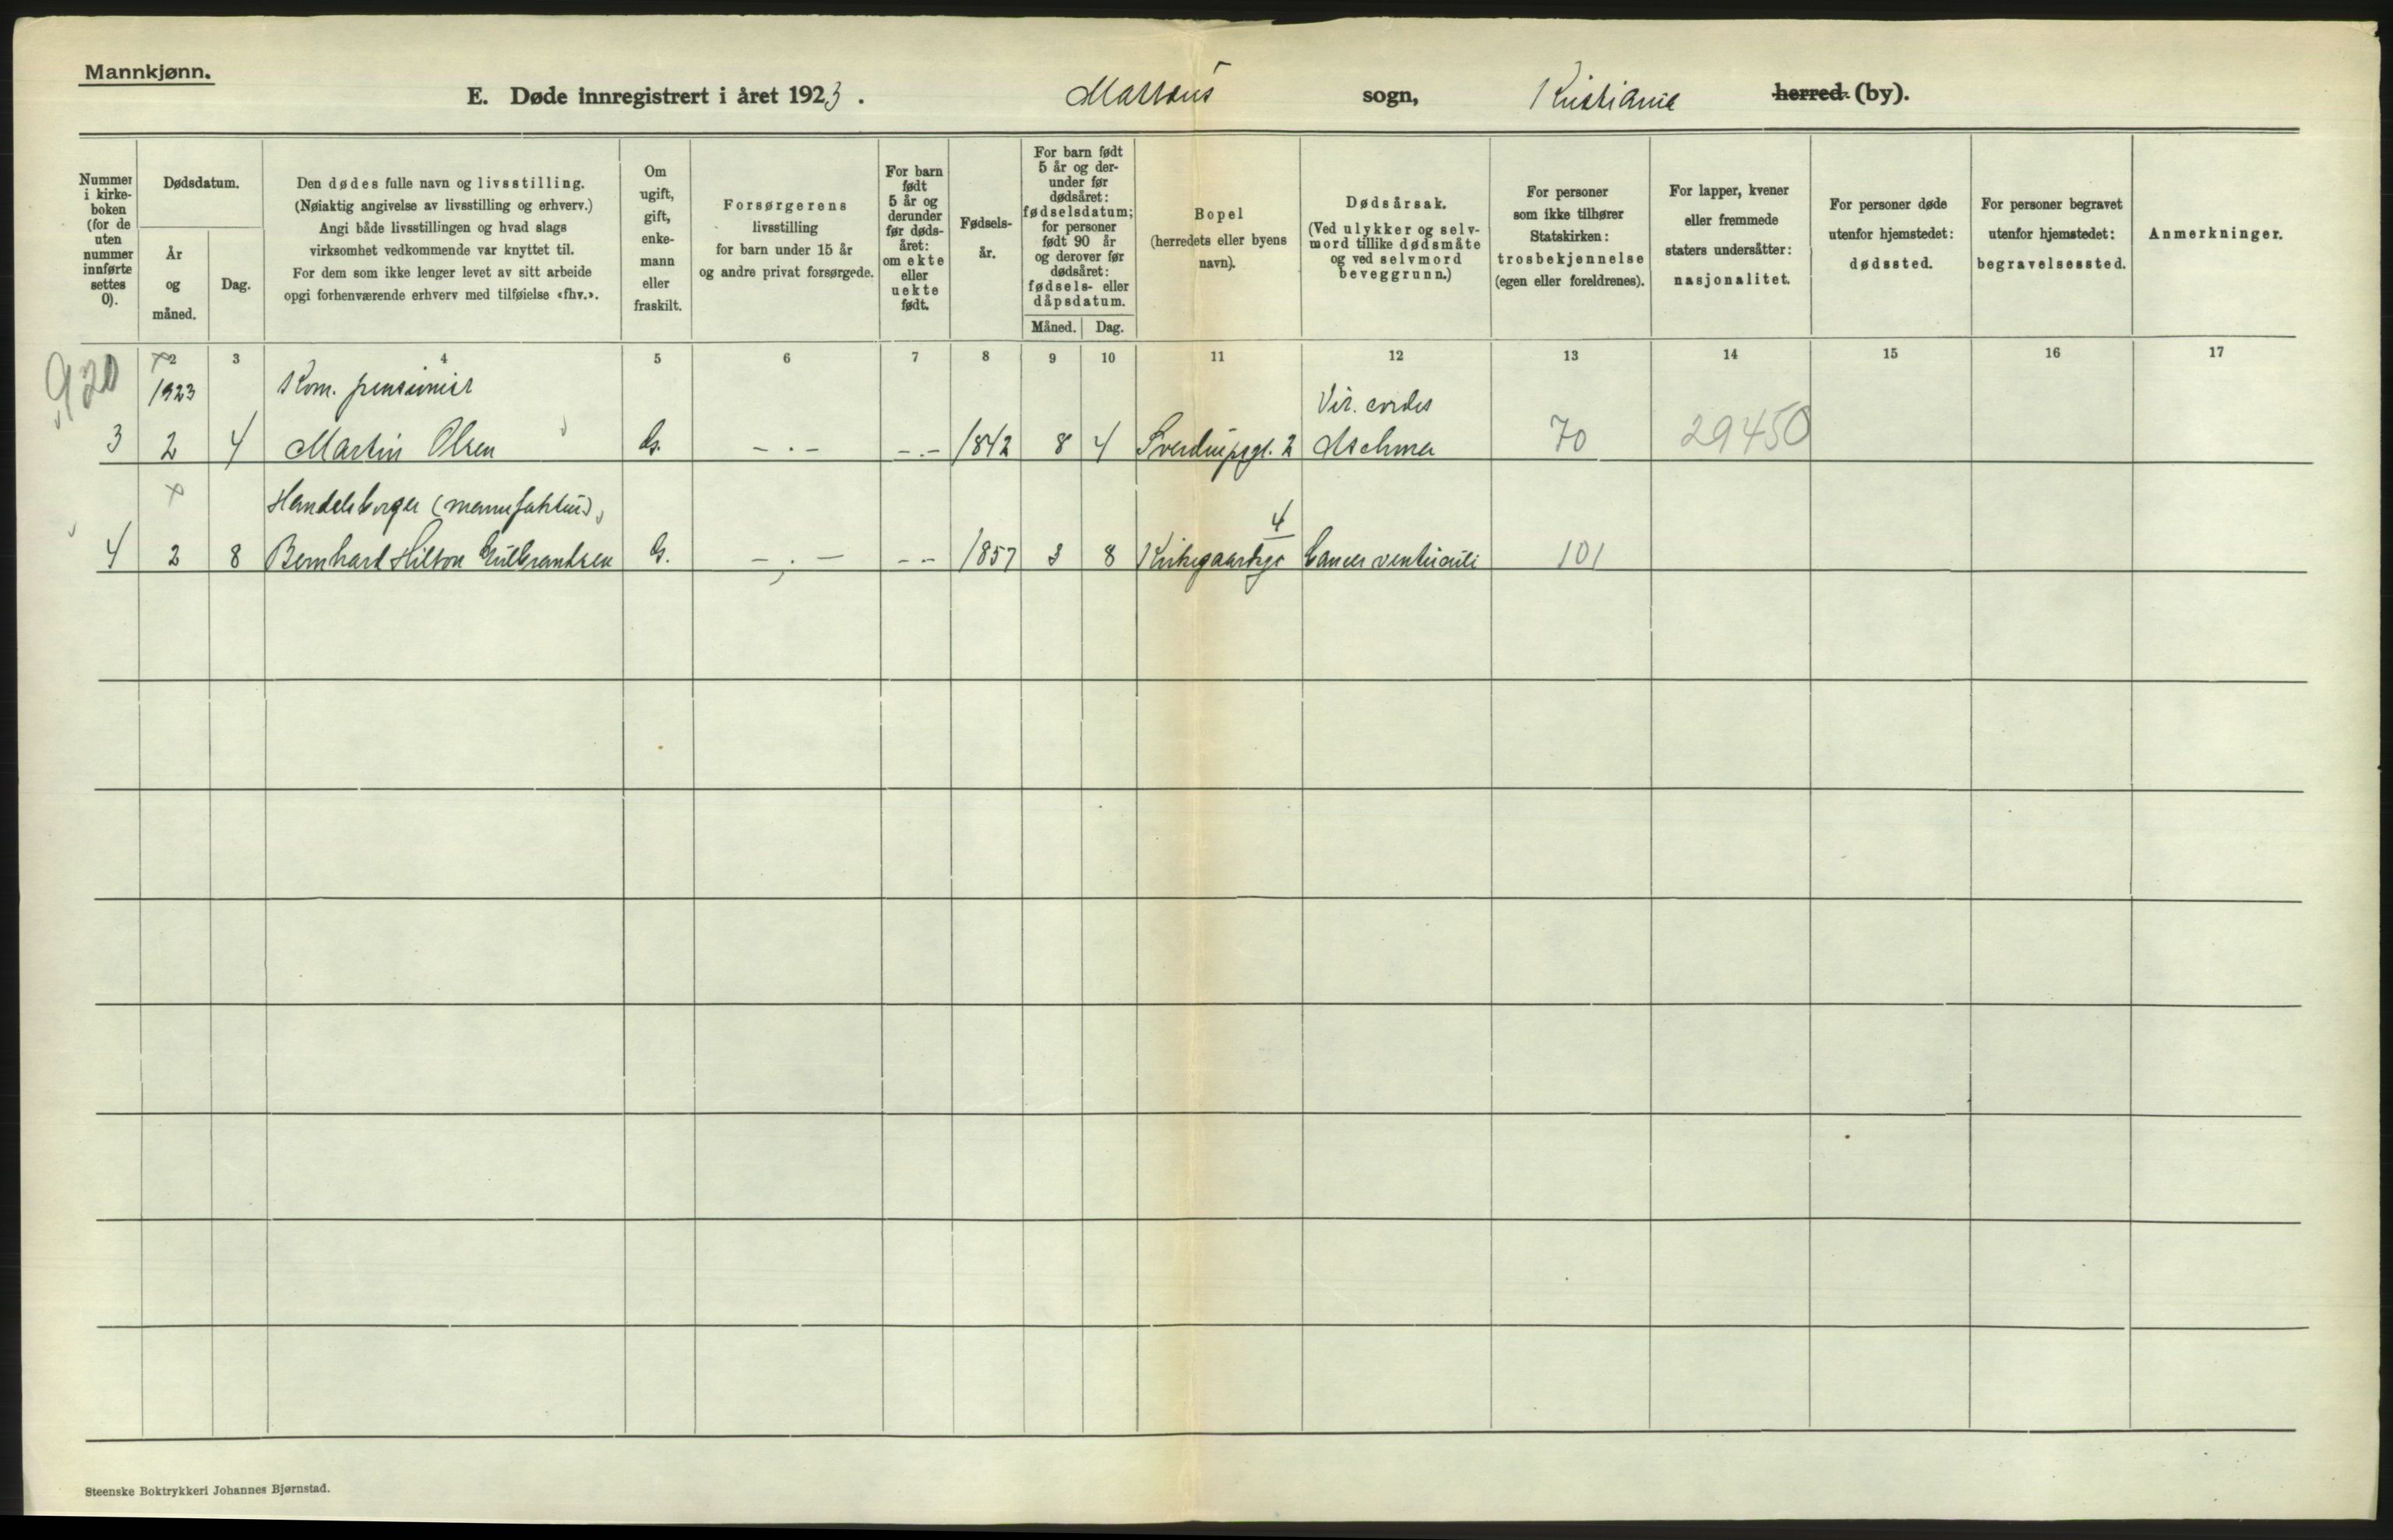 Mannkjønn.
E. Døde innregistrert i året 1923. Mattæus sogn, Kristiania herred. (by).
Nummer
i kirke-
boken
(for de
uten
nummer
innførte
settes
0).
Dødsdatum.
År
og
måned.
Dag.
Den dødes fulle navn og livsstilling.
(Nøiaktig angivelse av livsstilling og erhverv.)
Angi både livsstillingen og hvad slags
virksomhet vedkommende var knyttet til.
For dem som ikke lenger levet av sitt arbeide
opgi forhenværende erhverv med tilføielse «fhv.».
Om
ugift,
gift,
enke-
mann
eller
fraskilt.
Forsørgerens
livsstilling
for barn under 15 år
og andre privat forsørgede.
For barn
født
5 år og
derunder
før døds-
året:
om ekte
eller
uekte
født.
Fødsels-
år.
For barn født
5 år og der-
under før
dødsåret:
fødselsdatum;
for personer
født 90 år
og derover før
dødsåret:
fødsels- eller
dåpsdatum.
Måned. Dag.
Bopel
(herredets eller byens
navn).
Dødsårsak.
(Ved ulykker og selv-
mord tillike dødsmåte
og ved selvmord
beveggrunn.)
For personer
som ikke tilhører
Statskirken:
trosbekjennelse
(egen eller foreldrenes).
For lapper, kvener
eller fremmede
staters undersåtter:
nasjonalitet.
For personer døde
utenfor hjemstedet:
dødssted.
For personer begravet
utenfor hjemstedet:
begravelsessted.
Anmerkninger.
2 3 4 5 6 7 8 9 10 11 12 13 14 15 16 17
920
1923 Kom. pensionist Vit. cordis
3 2 4 Martin Olsen G. - . - - . - 1842 8 4 Sverdrupsgt. 2 Asthma 70 29450
Handelsborger (manufaktur) 4
4 2 8 Bernhard Hilton Gulbrandsen G. - . - - - 1857 3 8 Kirkegaardsgt Cancer ventriculi 101
Steenske Boktrykkeri Johannes Bjørnstad.